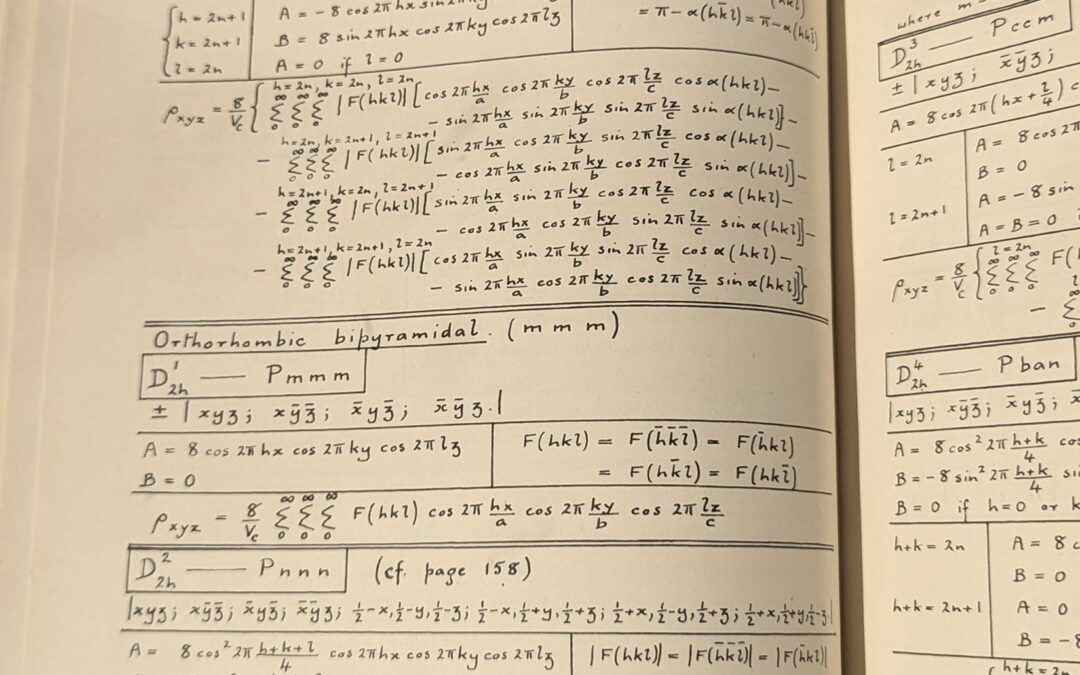 h = 2n+1
A = -8 cos 2πhx
k = 2n+1
B = 8 sin 2πhx cos 2πky cos 2πlz
= π-α(hk̄l) = π-α(hkl̄)
l = 2n
A = 0 if l = 0
h = 2n, k = 2n, l = 2n
ρxyz = 8/Vc { ∞Σ0 ∞Σ0 ∞Σ0 |F(hkl)| [cos 2π hx/a cos 2π ky/b cos 2π lz/c cos α(hkl) —
— sin 2π hx/a sin 2π ky/b sin 2π lz/c sin α(hkl)] —
h = 2n, k = 2n+1, l = 2n+1
— ∞Σ0 ∞Σ0 ∞Σ0 |F(hkl)| [sin 2π hx/a cos 2π ky/b sin 2π lz/c cos α(hkl) —
— cos 2π hx/a sin 2π ky/b cos 2π lz/c sin α(hkl)] —
h = 2n+1, k = 2n, l = 2n+1
— ∞Σ0 ∞Σ0 ∞Σ0 |F(hkl)| [sin 2π hx/a sin 2π ky/b cos 2π lz/c cos α(hkl) —
— cos 2π hx/a cos 2π ky/b sin 2π lz/c sin α(hkl)] —
h = 2n+1, k = 2n+1, l = 2n
— ∞Σ0 ∞Σ0 ∞Σ0 |F(hkl)| [cos 2π hx/a sin 2π ky/b sin 2π lz/c cos α(hkl) —
— sin 2π hx/a cos 2π ky/b cos 2π lz/c sin α(hkl)]}
Orthorhombic bipyramidal. (mmm)
D¹2h — Pmmm
± | xyz; xȳz̄; x̄yz̄; x̄ȳz. |
A = 8 cos 2πhx cos 2πky cos 2πlz
F(hkl) = F(h̄k̄l̄) = F(h̄kl)
B = 0
= F(hk̄l) = F(hkl̄)
ρxyz = 8/Vc ∞Σ0 ∞Σ0 ∞Σ0 F(hkl) cos 2π hx/a cos 2π ky/b cos 2π lz/c
D²2h — Pnnn (cf. page 158)
|xyz; xȳz̄; x̄yz̄; x̄ȳz; ½-x,½-y,½-z; ½-x,½+y,½+z; ½+x,½-y,½+z; ½+x,½+y,½-z.|
A = 8 cos² 2π h+k+l/4 cos 2πhx cos 2πky cos 2πlz
|F(hkl)| = |F(h̄k̄l̄)| = |F(h̄kl)|
where m =
D³2h — Pccm
± | xyz; x̄ȳz;
A = 8 cos 2π(hx + l/4) c
l = 2n
A = 8 cos 2π
B = 0
l = 2n+1
A = -8 sin
A = B = 0
l = 2n
ρxyz = 8/Vc { ∞Σ0 ∞Σ0 ∞Σ0 F(
— ∞Σ0
D⁴2h — Pban
|xyz; xȳz̄; x̄yz̄;
A = 8 cos² 2π h+k/4 cos
B = -8 sin² 2π h+k/4 si
B = 0 if h=0 or k
h+k = 2n
A = 8 c
B = 0
h+k = 2n+1
A = 0
B = -8
h+k = 2n